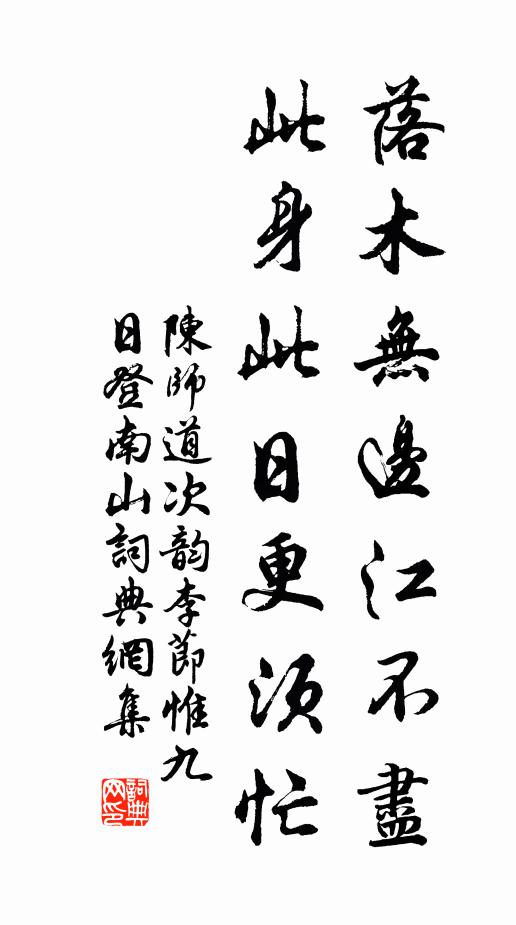 落木無邊江不盡
此身此日更須忙
陳師道次韵李節惟九
日登南山詞典網集
詞典
网印